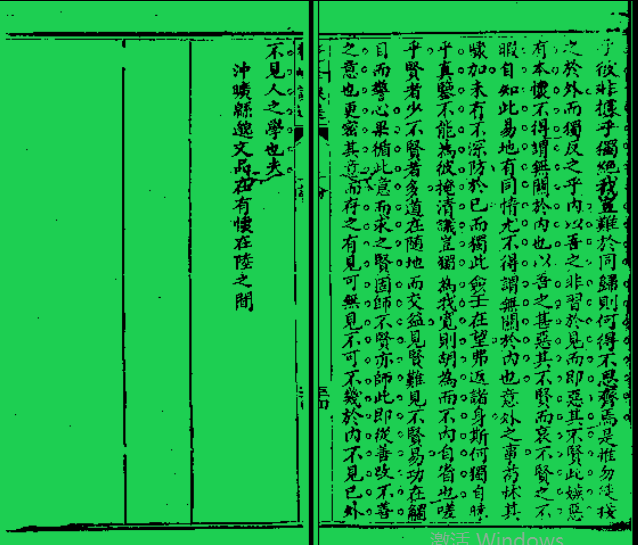 乎彼非擾乎獨絕我豈難於同歸則何得不思齊焉是惟勿徒技
之於外而獨反之乎內以吾之非習於見而即惡其不賢此嫉惡
有本懷不得謂無關於內也以吾之甚惡其不賢而哀不賢之不
暇自知此易地有同情尤不得謂無關於內也意外之事苟怵其
驟加未有不深防於已而獨此僉壬在望弗返諸身斯何獨自曉
乎真蒙不能為彼掩清議豈獨為我寬則胡為而不內自省也嗟
乎賢者少不賢者多道在隨地而交益見賢難見不賢易功在觸
目而警心果循此意而求之賢固師不賢亦師此即從善改不善
之意也更密其意而存之有見可無見不可不幾於內不見已外
不見人之學也夫
沖曠縣邈文品在有懷在陸之間
激活 Windows